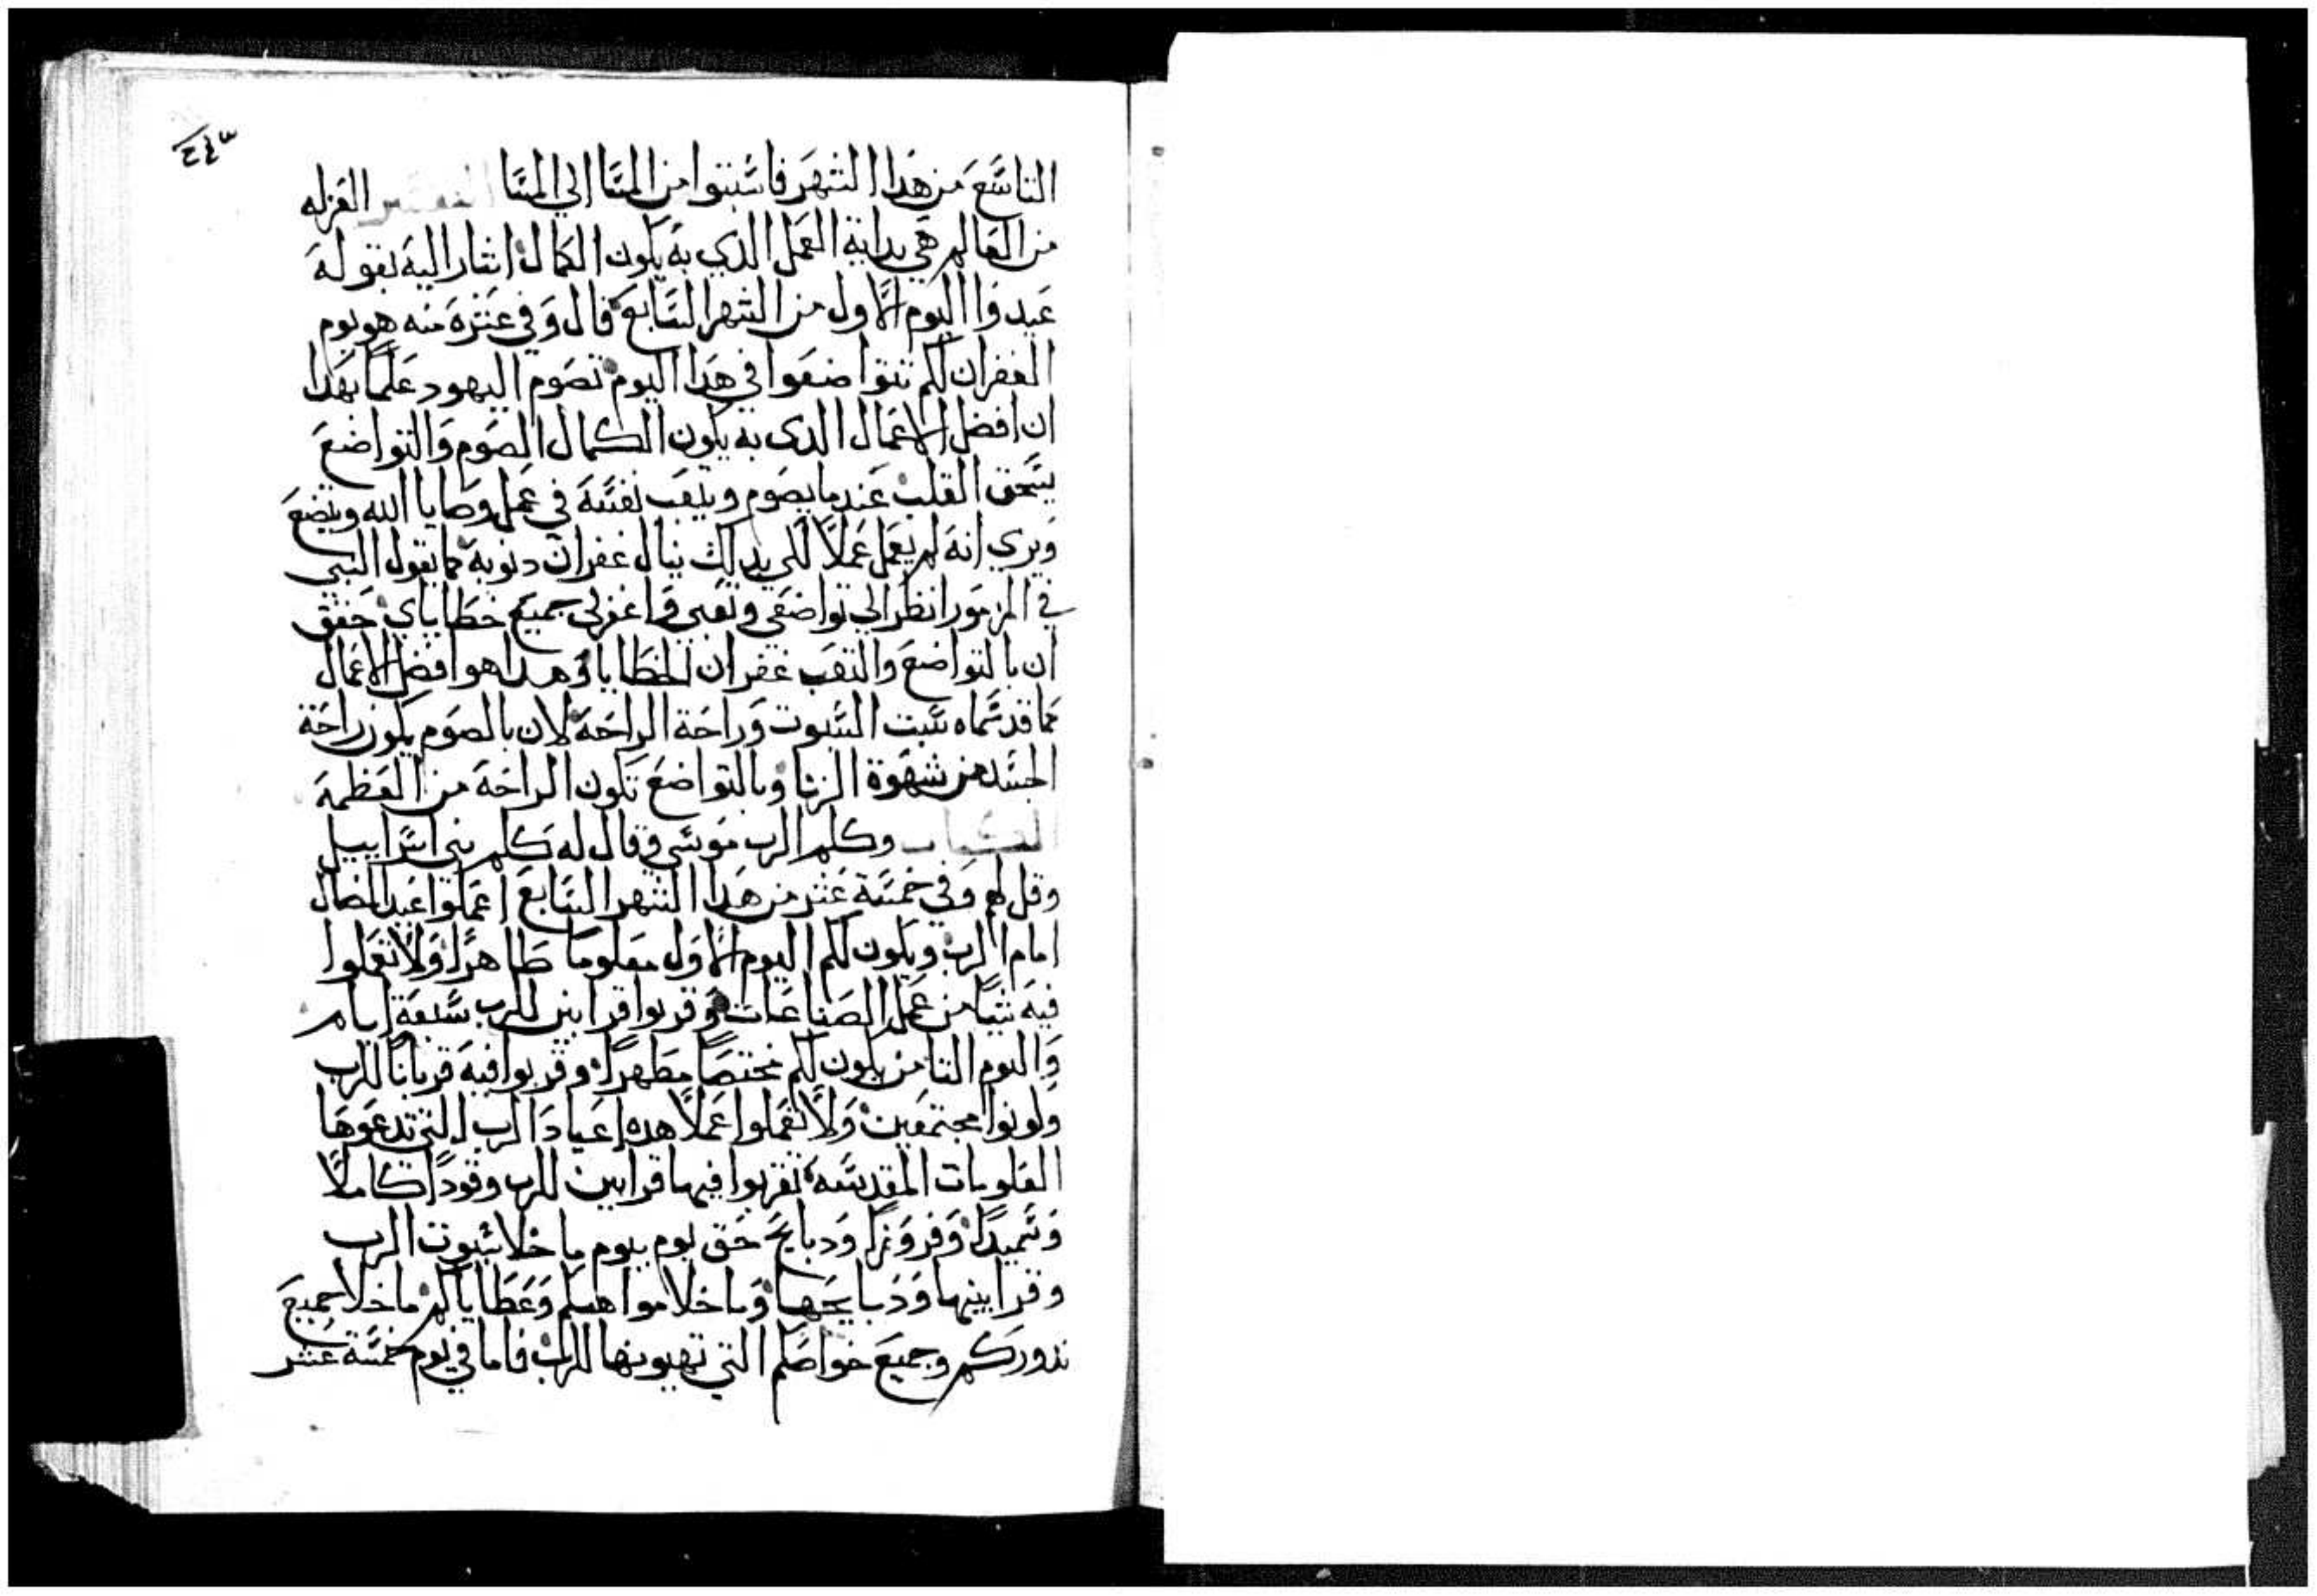 ٢٤٣
التاسع من هدا الشهر فاسبتوا من المسا الي المسا التفسير العزله
من العالم هي بداية العمل الدي به يكون الكمال اشار اليه بقوله
عيدوا اليوم الاول من الشهر السابع قال وفي عشره منه هو يوم
الغفران لكم تتواضعوا في هدا اليوم تصوم اليهود علما بهدا
ان افضل الاعمال الدي به يكون الكمال الصوم والتواضع
ينسحق القلب عندما يصوم ويتعب نفسه في عمل وصايا الله ويتضع
ويري انه لم يعمل عملا لكي بدلك ينال غفران دنوبه كما يقول النبي
في المزمور انظر الي تواضعي وتعبي واغفر لي جميع خطاياي حقق
ان بالتواضع والتعب غفران الخطايا وهدا هو افضل الاعمال
كما قد سماه سبت السبوت وراحة الراحة لان بالصوم يكون راحة
الجسد من شهوة الزنا وبالتواضع تكون الراحة من العظمة
الكتاب وكلم الرب موسي وقال له كلم بني اسراييل
وقل لهم وفي خمسة عشر من هدا الشهر السابع اعملوا عيد المضال
امام الرب ويكون لكم اليوم الاول معلوما طاهرا ولا تعملوا
فيه شيا من عمل الصناعات وقربوا قرابين للرب سبعة ايام
واليوم التامن يكون لكم مختصا مطهرا وقربوا فيه قربانا للرب
وكونوا مجتمعين ولا تعملوا عملا هده اعياد الرب التي تدعوها
المعلومات المقدسه تقربوا فيها قرابين للرب وقودا كاملا
وسميدا وفروزا ودبايح حق يوم بيوم ما خلا سبوت الرب
وقرابينها ودبايحها وما خلا مواهبكم وعطاياكم ما خلا جميع
ندوركم وجميع خواصكم التي تهبونها للرب فاما في يوم خمسة عشر